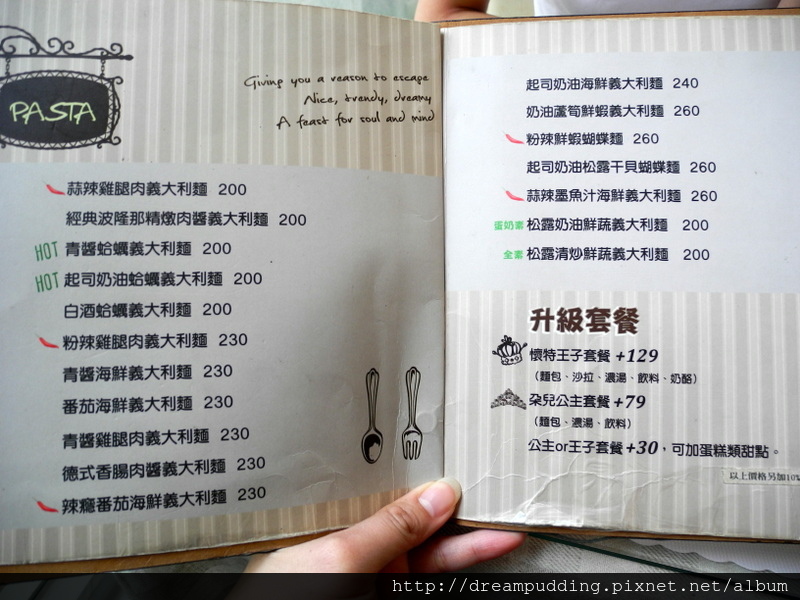 PASTA
Giving you a reason to escape
Nice, trendy, dreamy
A feast for soul and mind
蒜辣雞腿肉義大利麵 200
經典波隆那精燉肉醬義大利麵 200
HOT 青醬蛤蠣義大利麵 200
HOT 起司奶油蛤蠣義大利麵 200
白酒蛤蠣義大利麵 200
粉辣雞腿肉義大利麵 230
青醬海鮮義大利麵 230
番茄海鮮義大利麵 230
青醬雞腿肉義大利麵 230
德式香腸肉醬義大利麵 230
辣癮番茄海鮮義大利麵 230
起司奶油海鮮義大利麵 240
奶油蘆筍鮮蝦義大利麵 260
粉辣鮮蝦蝴蝶麵 260
起司奶油松露干貝蝴蝶麵 260
蒜辣墨魚汁海鮮義大利麵 260
蛋奶素 松露奶油鮮蔬義大利麵 200
全素 松露清炒鮮蔬義大利麵 200
升級套餐
懷特王子套餐+129
(麵包、沙拉、濃湯、飲料、奶酪)
朵兒公主套餐+79
(麵包、濃湯、飲料)
公主or王子套餐+30，可加蛋糕類甜點。
以上價格另加10%
http://dreampudding.pixnet.net/album